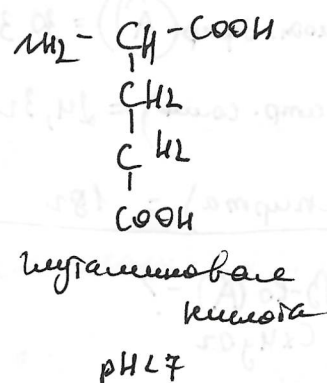 NH2 - CH - COOH
CH2
CH2
COOH
глутаминовая
кислота
pH < 7